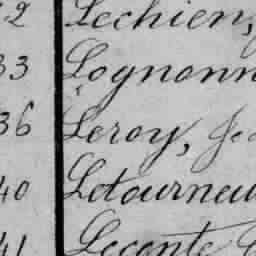 Lechien,
33 Lognonn
36 Leroy, Je
40 Letourneu
41 Leconte